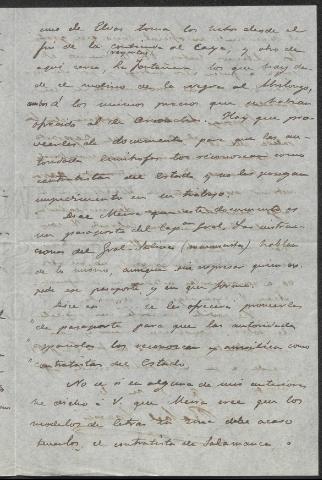 uno de Elvas toma los hitos desde el
fin de la contienda al Caya, y otro de
aquí cerca, la Fontañera, los que hay des-
de el molino de la negra al Abrilongo,
ambos á los mismos precios que se habían
ofrecido al de Arronches. Hay que pro-
veerles de documento para que las au-
toridades limítrofes los reconozcan como
contratistas del Estado y no les pongan
impedimento en su trabajo.
Dice Meira que este documento es
un pasaporte del Capn. Gral. Las instruc-
ciones del Gral. hablan
de lo mismo, aunque sin expresar quien ex-
pide ese pasaporte y en que forma.
Dice así " se le oficiará proveerles
"de pasaporte para que las autoridades
"españolas los reconozcan y auxilien como
"contratistas del Estado.
No se si en alguna de mis anteriores
he dicho a V. que Meira cree que los
modelos de letras de zinc debe acaso
tenerlos el contratista de Salamanca o